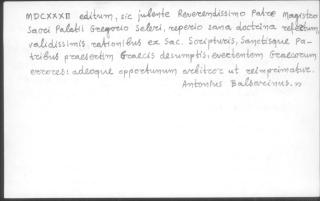 MDCXXXII editum, sic jubente Reverendissimo Patre Magistro
Sacri Palatii Gregorio Seleri, reperio sana doctrina refertum,
validissimis rationibus ex Sac. Scripturis, Sanctisque Pa-
tribus praesertim Graecis desumptis, evertentem Graecorum
errores: adeoque opportunum arbitror ut reimprimatur.
Antonius Balbarinus.»